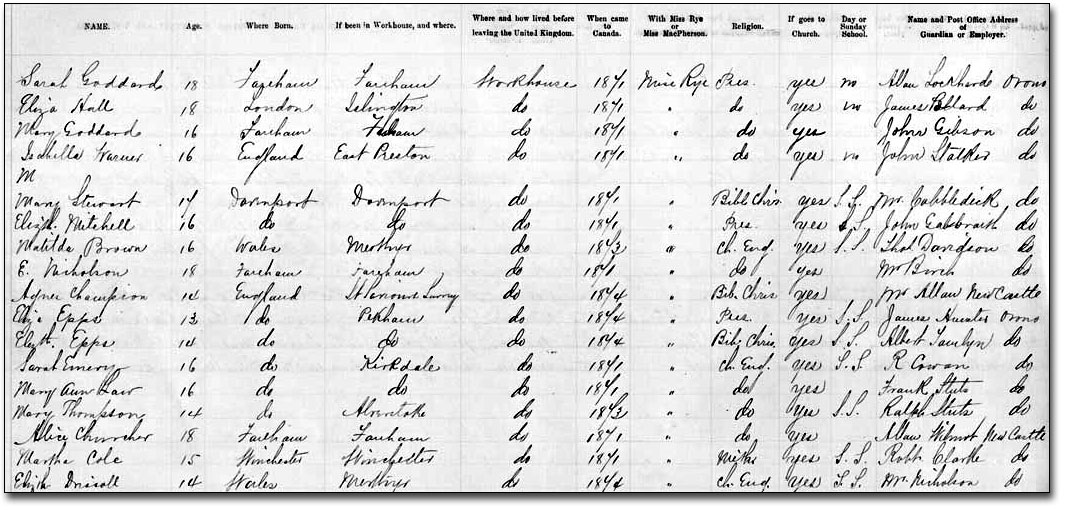 NAME. Age. Where Born. If been in Workhouse, and where. Where and how lived before leaving the United Kingdom. When came to Canada. With Miss Rye or Miss MacPherson. Religion. If goes to Church. Day or Sunday School. Name and Post Office Address of Guardian or Employer.
Sarah Goddard 18 Fareham Fareham Workhouse 1871 Miss Rye Pres. yes no Allan Lockhardt Orono
Eliza Hall 18 London Islington do 1871 " do yes no James Ellard do
Mary Goddard 16 Fareham do 1871 " do yes John Gibson do
Isabella Warner 16 England East Preston do 1871 " do yes no John Stalker do
M
Mary Stewart 14 Davenport Davenport do 1871 " Bibl Chris yes S.S. Mr. Cobbledick do
Elizh. Mitchell 16 do do do 1871 " Pres. yes S.S. John Galbraith do
Matilda Brown 16 Wales Merthyr do 1873 " Ch. Eng. yes S.S. Thos Davidson do
E. Nicholson 18 Fareham Fareham do 1871 " do yes Mr Birch do
Agnes Champion 14 England do 1874 " Bib. Chris yes Mr Allan New Castle
Eliza Epps 13 do Peckham do 1874 " Pres. yes S.S. James Hunter Orono
Elizth. Epps 14 do do do 1874 " Bib. Chris yes S.S. Albert do
Sarah Emery 16 do Kirkdale do 1871 " Ch. Eng. yes S.S. R Cowan do
Mary Ann Law 16 do do do 1871 " do yes Frank Stuts do
Mary Thompson 14 do do 1873 " do yes S.S. Ralph Stuts do
Alice Churcher 18 Fareham Fareham do 1871 " do yes Allan Wilmot New Castle
Martha Cole 15 Winchester Winchester do 1871 " yes S.S. Robt Clarke do
Eliza Driscoll 14 Wales Merthyr do 1874 " Ch. Eng. yes S.S. Mr. Nicholson do